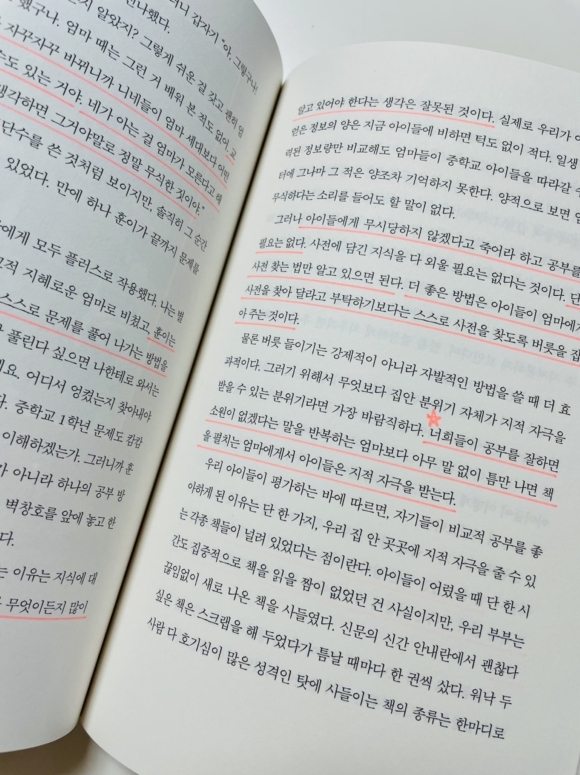 갑자기 "아, 그렇구나!
했구나. 엄마 때는 그런 거 배워 본 적도 없이, 고
자꾸자꾸 바뀌니까 니네들이 엄마 세대보다 어떤
수도 있는 거야. 네가 아는 걸 엄마가 모른다고 해
생각하면 그거야말로 정말 무식한 것이야.
단수를 쓴 것처럼 보이지만, 솔직히 그 순간
있었다. 만에 하나 훈이가 끝까지 문제를
에게 모두 플러스로 작용했다. 나는 별
지혜로운 엄마로 비쳤고, 훈이는
스스로 문제를 풀어 나가는 방법을
풀린다 싶으면 나한테로 와서는
요. 어디서 엉켰는지 찾아내야
중학교 1학년 문제도 캄캄
이해하겠는가. 그러니까 훈
아니라 하나의 공부 방
벽창호를 앞에 놓고 한
다.
는 이유는 지식에 대
무엇이든지 많이
알고 있어야 한다는 생각은 잘못된 것이다. 실제로 우리가 아
정보의 양은 지금 아이들에 비하면 턱도 없이 적다. 일생
력된 정보량만 비교해도 엄마들이 중학교 아이들을 따라갈
터에 그나마 그 적은 양조차 기억하지 못한다. 양적으로 보면 엄
무식하다는 소리를 들어도 할 말이 없다.
그러나 아이들에게 무시당하지 않겠다고 죽어라 하고 공부를
필요는 없다. 사전에 담긴 지식을 다 외울 필요는 없다는 것이다. 단
사전 찾는 법만 알고 있으면 된다. 더 좋은 방법은 아이들이 엄마에게
사전을 찾아 달라고 부탁하기보다는 스스로 사전을 찾도록 버릇을 집
아 주는 것이다.
물론 버릇 들이기는 강제적이 아니라 자발적인 방법을 쓸 때 더 효
과적이다. 그러기 위해서 무엇보다 집안 분위기 자체가 지적 자극을
받을 수 있는 분위기라면 가장 바람직하다. 너희들이 공부를 잘하면
소원이 없겠다는 말을 반복하는 엄마보다 아무 말 없이 틈만 나면 책
을 펼치는 엄마에게서 아이들은 지적 자극을 받는다.
우리 아이들이 평가하는 바에 따르면, 자기들이 비교적 공부를 좋
아하게 된 이유는 단 한 가지, 우리 집 안 곳곳에 지적 자극을 줄 수 있
는 각종 책들이 널려 있었다는 점이란다. 아이들이 어렸을 때 단 한 시
간도 집중적으로 책을 읽을 짬이 없었던 건 사실이지만, 우리 부부는
끊임없이 새로 나온 책을 사들였다. 신문의 신간 안내란에서 괜찮다
싶은 책은 스크랩을 해 두었다가 틈날 때마다 한 권씩 샀다. 워낙 두
사람 다 호기심이 많은 성격인 탓에 사들이는 책의 종류는 한마디로